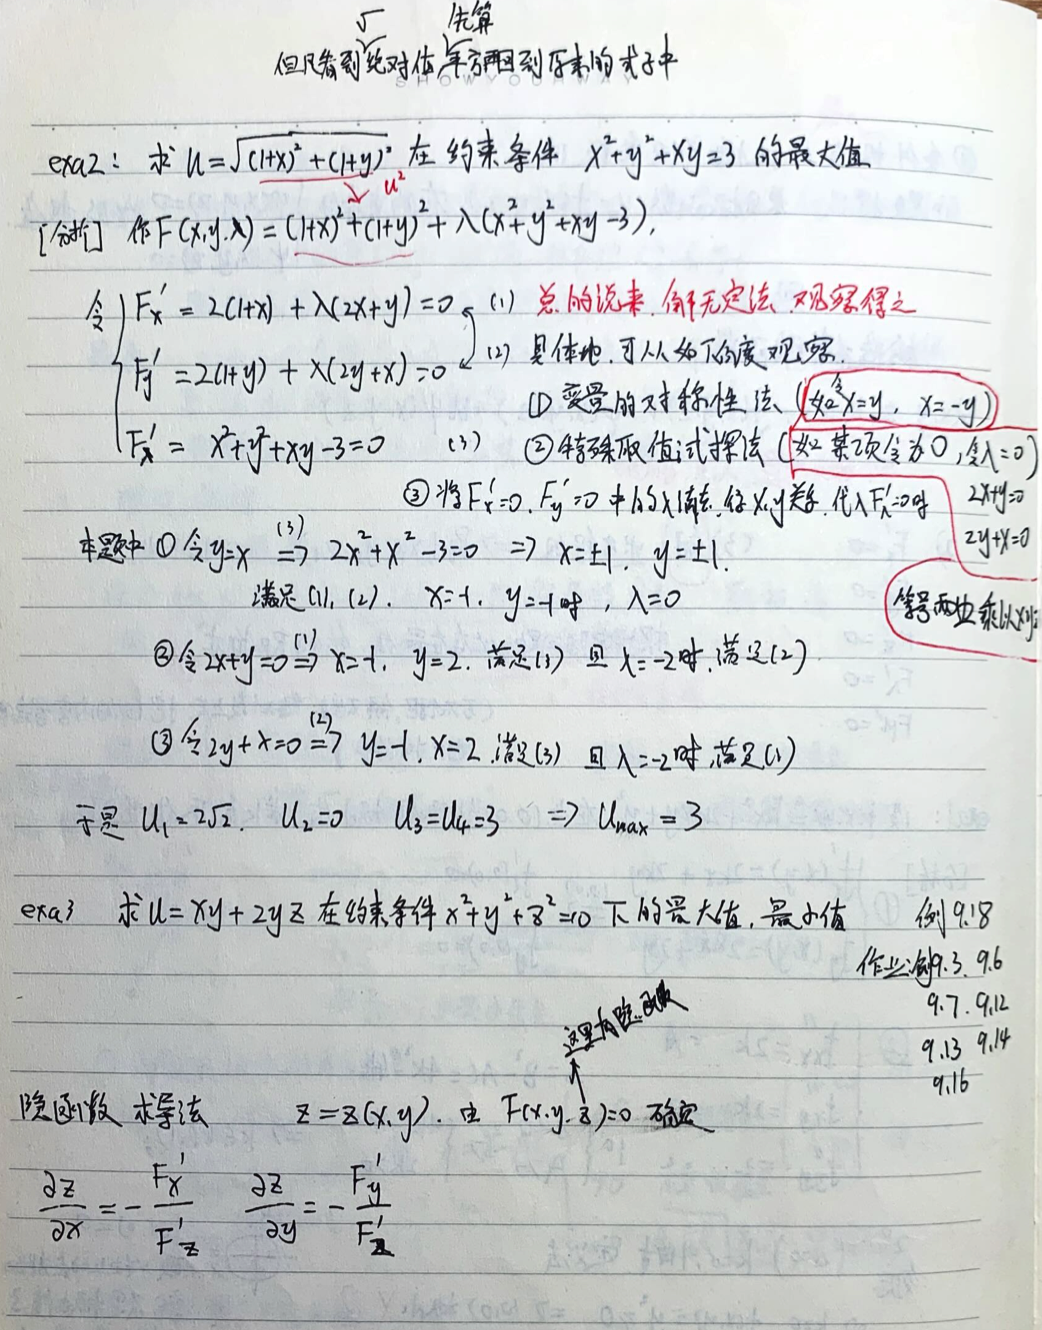 √ 估算
但凡看到绝对值,平方再回到原来的式子中
exa2: 求 u=√((1+x)²+(1+y)²) 在约束条件 x²+y²+xy=3 的最大值
u²
[分析] 作F(x,y,λ)=(1+x)²+(1+y)²+λ(x²+y²+xy-3),
令 { Fx′ = 2(1+x) + λ(2x+y)=0 (1) 总的说来,解无定法,观察得之
Fy′ =2(1+y) + λ(2y+x)=0 (2) 具体地,可从如下角度观察.
① 变量的对称性法 (如令x=y, x=-y)
Fλ′ = x²+y²+xy-3=0 (3) ②特殊取值试探法 (如某项令为0,令λ=0)
2x+y=0
③将Fx′=0,Fy′=0中的λ消去,得x,y关系,代入Fλ′=0时
2y+x=0
本题中 ① 令y=x (3)⇒ 2x²+x²-3=0 ⇒ x=±1, y=±1.
满足(1),(2). x=-1, y=-1时, λ=0
等号两边乘以xyz
②令2x+y=0 (1)⇒ x=-1, y=2. 满足(3) 且 λ=-2时,满足(2)
③令2y+x=0 (2)⇒ y=-1, x=2 满足(3) 且λ=-2时,满足(1)
于是 U₁=2√2. U₂=0 U₃=U₄=3 ⇒ Umax=3
exa3 求u=xy+2yz在约束条件x²+y²+z²=10下的最大值,最小值 例9.18
作业:例9.3. 9.6
9.7. 9.12
9.13 9.14
9.16
这里有隐函数
隐函数求导法 z=z(x,y). 由 F(x,y,z)=0 确定
∂z/∂x = - Fx′/Fz′ ∂z/∂y = - Fy′/Fz′